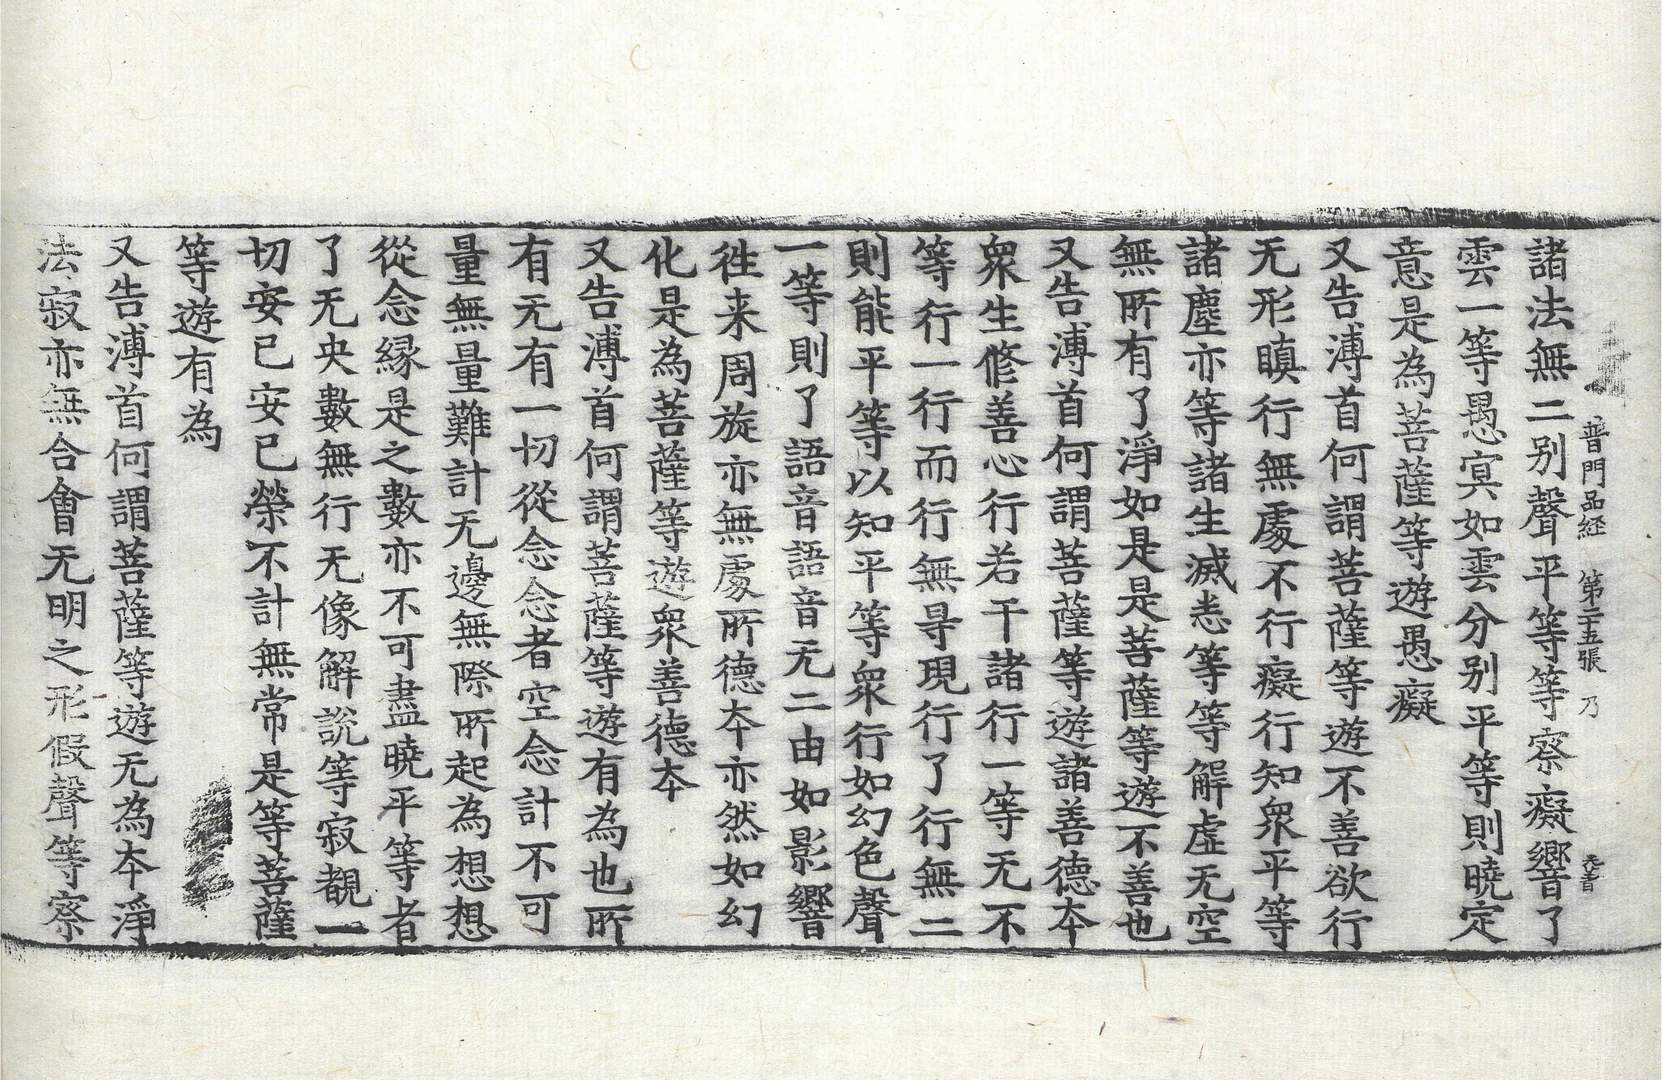 普門品経 第二十五張 乃
諸法無二别聲平等等察癡響了
雲一等愚冥如雲分别平等則曉定
意是為菩薩等遊愚癡
又告溥首何謂菩薩等遊不善欲行
无形瞋行無處不行癡行知衆平等
諸塵亦等諸生滅恚等等解虚无空
無所有了淨如是是菩薩等遊不善也
又告溥首何謂菩薩等遊諸善德夲
衆生修善心行若干諸行一等无不
等行一行而行無㝵現行了行無二
則能平等以知平等衆行如幻色聲
一等則了語音語音无二由如影響
徃来周旋亦無處所德夲亦然如幻
化是為菩薩等遊衆善德夲
又告溥首何謂菩薩等遊有為也所
有无有一切從念念者空念計不可
量無量難計无邊無際所起為想想
從念縁是之數亦不可盡曉平等者
了无央數無行无像解説等寂覩一
切安已安已榮不計無常是等菩薩
等遊有為
又告溥首何謂菩薩等遊无為夲淨
法寂亦無合會无明之形假聲等察